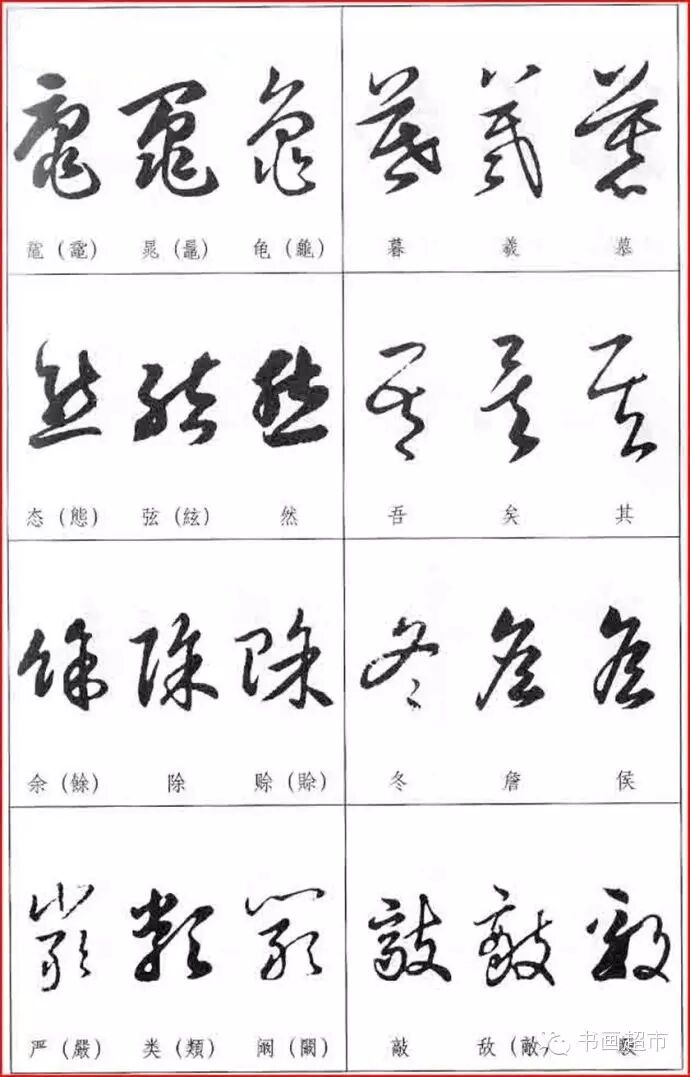 晁（鼂） 龟（龜） 暮 羲 慕
态（態） 弦（絃） 然 吾 矣 其
余（餘） 除 赊（賒） 冬 詹 侯
严（嚴） 类（類） 敲 敌（敵）
书画超市